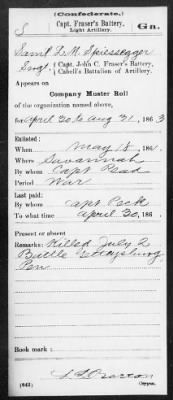 (Confederate.)
S Capt. Fraser's Battery, Ga.
Light Artillery.
Saml L. M. Spiessegger
Sergt, Capt. John C. Fraser's Battery,
Cabell's Battalion of Artillery.
Appears on
Company Muster Roll
of the organization named above,
for April 30 to Aug 31, 1863
Enlisted:
When May 18, 186
Where Savannah
By whom Capt Read
Period War
Last paid:
By whom Capt Peck
To what time April 30, 186
Present or absent
Remarks: Killed July 2
Battle Gettysburg
Pen
Book mark:
(642)
Copyist.